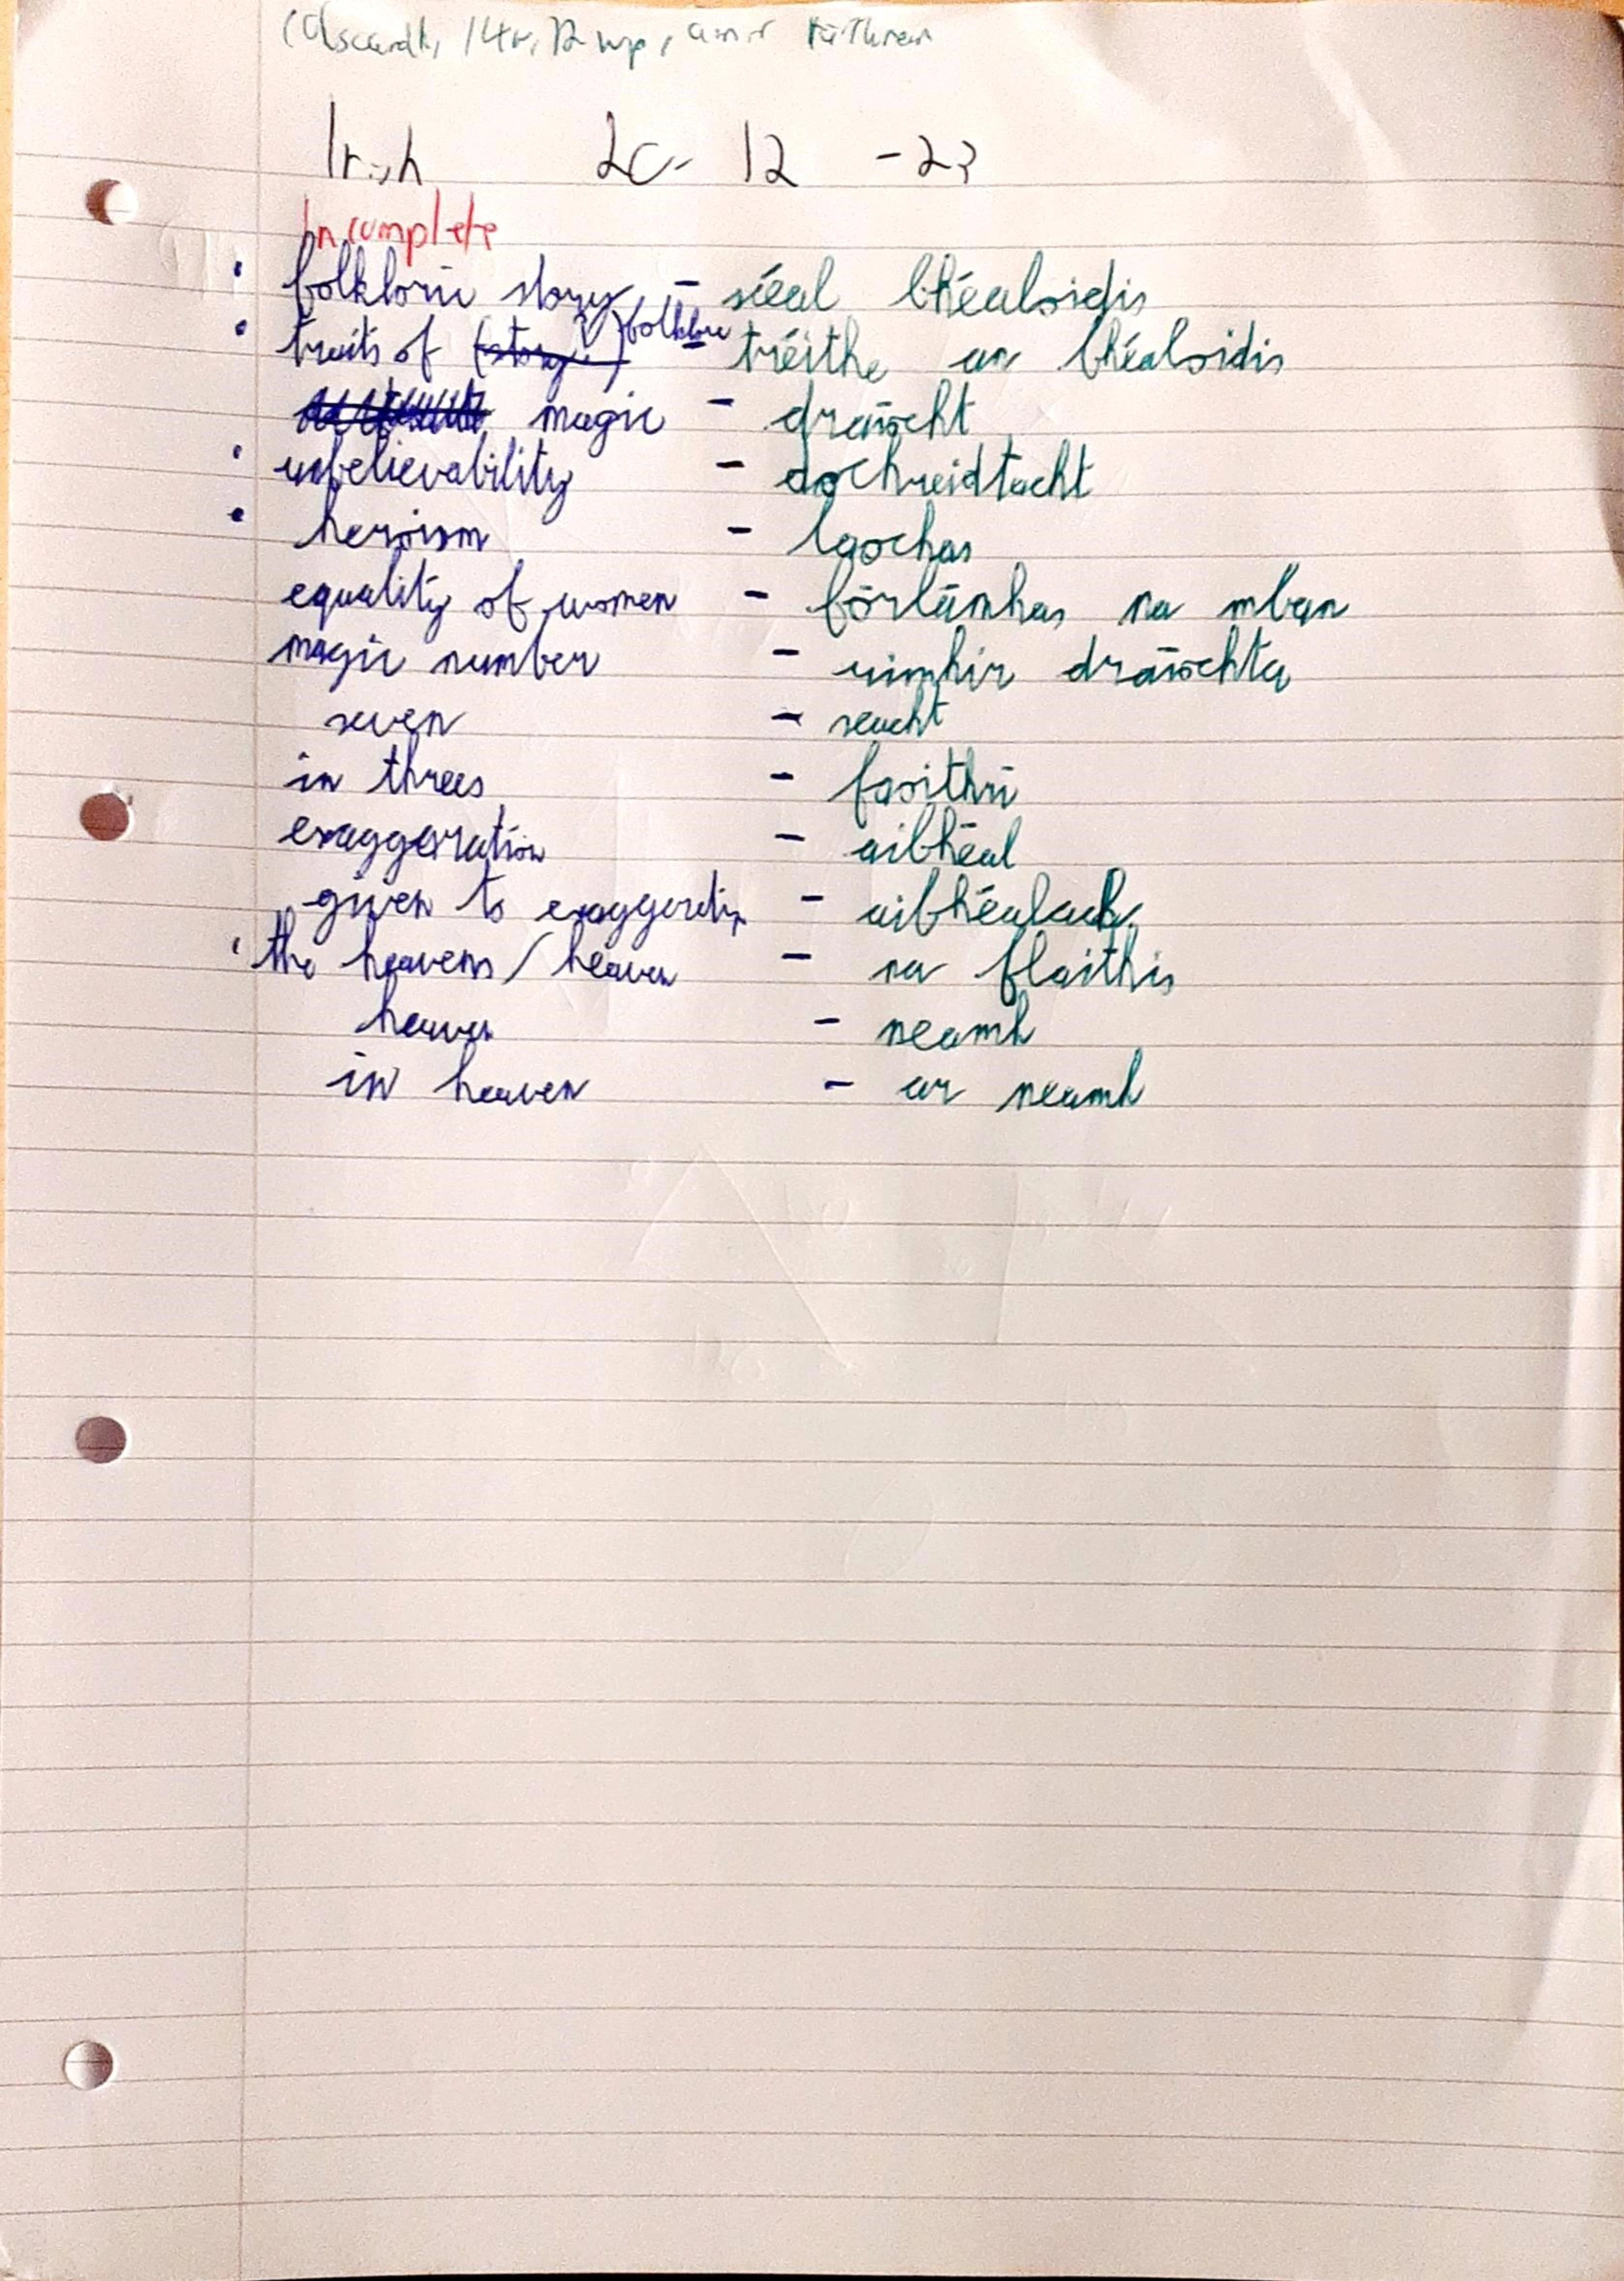 Irish 20- 12 -23
Incomplete
folkloric story - scéal bhéaloidis
traits of folklore tréithe an bhéaloidis
magic - draíocht
unbelievability - dochreidtacht
heroism - laochas
equality of women - fórlámhas na mban
magic number - uimhir draíochta
seven - seacht
in threes - faoithrí
exaggeration - aibhéal
given to exaggeratin - aibhéalach
the heavens / heaven - na flaithis
heaven - neamh
in heaven - ar neamh